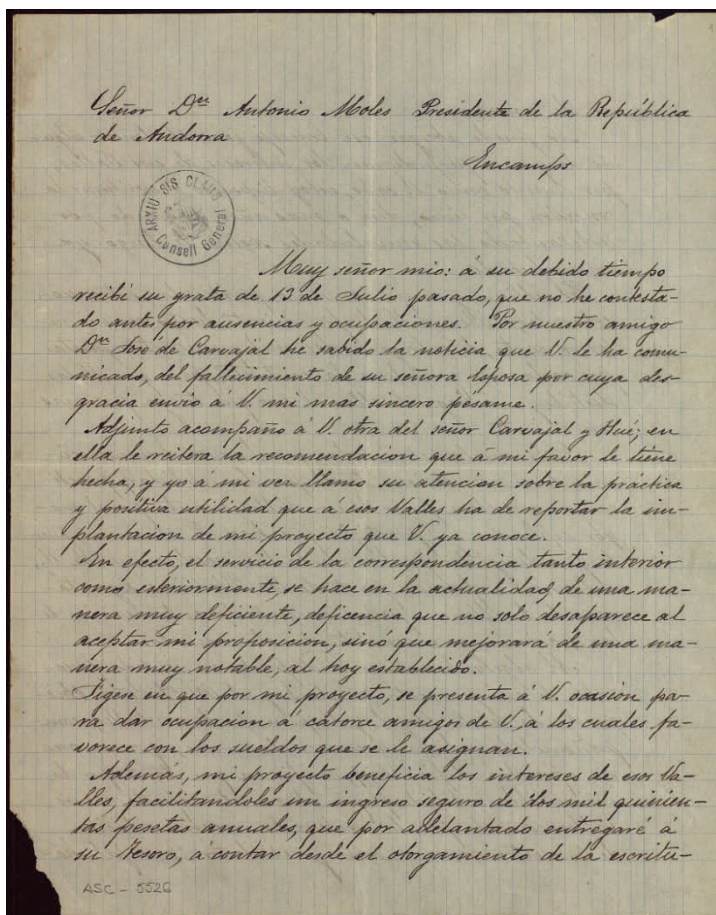 Señor Dn Antonio Moles Presidente de la República
de Andorra
Encamps
ARXIU SIS CLAUS
Consell General
Muy señor mio: á su debido tiempo
recibi su grata de 13 de Julio pasado, que no he contesta-
do antes por ausencias y ocupaciones. Por nuestro amigo
Dn José de Carvajal he sabido la noticia que V. le ha comu-
nicado, del fallecimiento de su señora esposa por cuya des-
gracia envio á V. mi mas sincero pésame.
Adjunto acompaño á V. otra del señor Carvajal y Hué; en
ella le reitera la recomendacion que á mi favor le tiene
hecha, y yo á mi vez llamo su atencion sobre la práctica
y positiva utilidad que á esos Valles ha de reportar la im-
plantacion de mi proyecto que V. ya conoce.
En efecto, el servicio de la correspondencia tanto interior
como esteriormente, se hace en la actualidad, de una ma-
nera muy deficiente, deficencia que no solo desaparece al
aceptar mi proposicion, sinó que mejorará de una ma-
nera muy notable, al hoy establecido.
Fígese en que por mi proyecto, se presenta á V. ocasion pa-
ra dar ocupacion a catorce amigos de V. á los cuales fa-
vorece con los sueldos que se le asignan.
Además, mi proyecto beneficia los intereses de esos Va-
lles, facilitandoles un ingreso seguro de dos mil quinien-
tas pesetas anuales, que por adelantado entregaré á
su Tesoro, á contar desde el otorgamiento de la escritu-
ASC - 5526